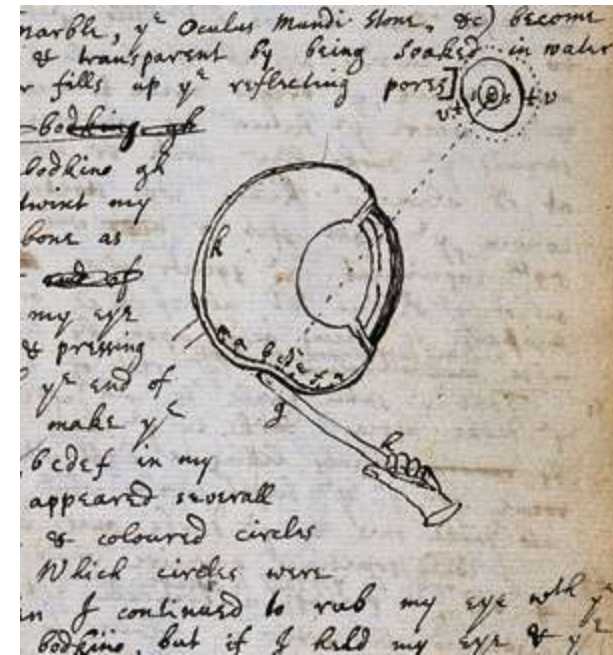 marble, yᵉ Oculus Mundi stone, &c) become
& transparent by being soaked in water
r fills up yᵉ reflecting pores]
bodkine gh
bodkine gh
twixt my
bone as
end of
my eye
& pressing
yᵉ end of
make yᵉ
bcdef in my
appeared severall
& coloured circles
Which circles were
n I continued to rub my eye wᵗʰ yᵉ
bodkine, but if I held my eye & yᵉ